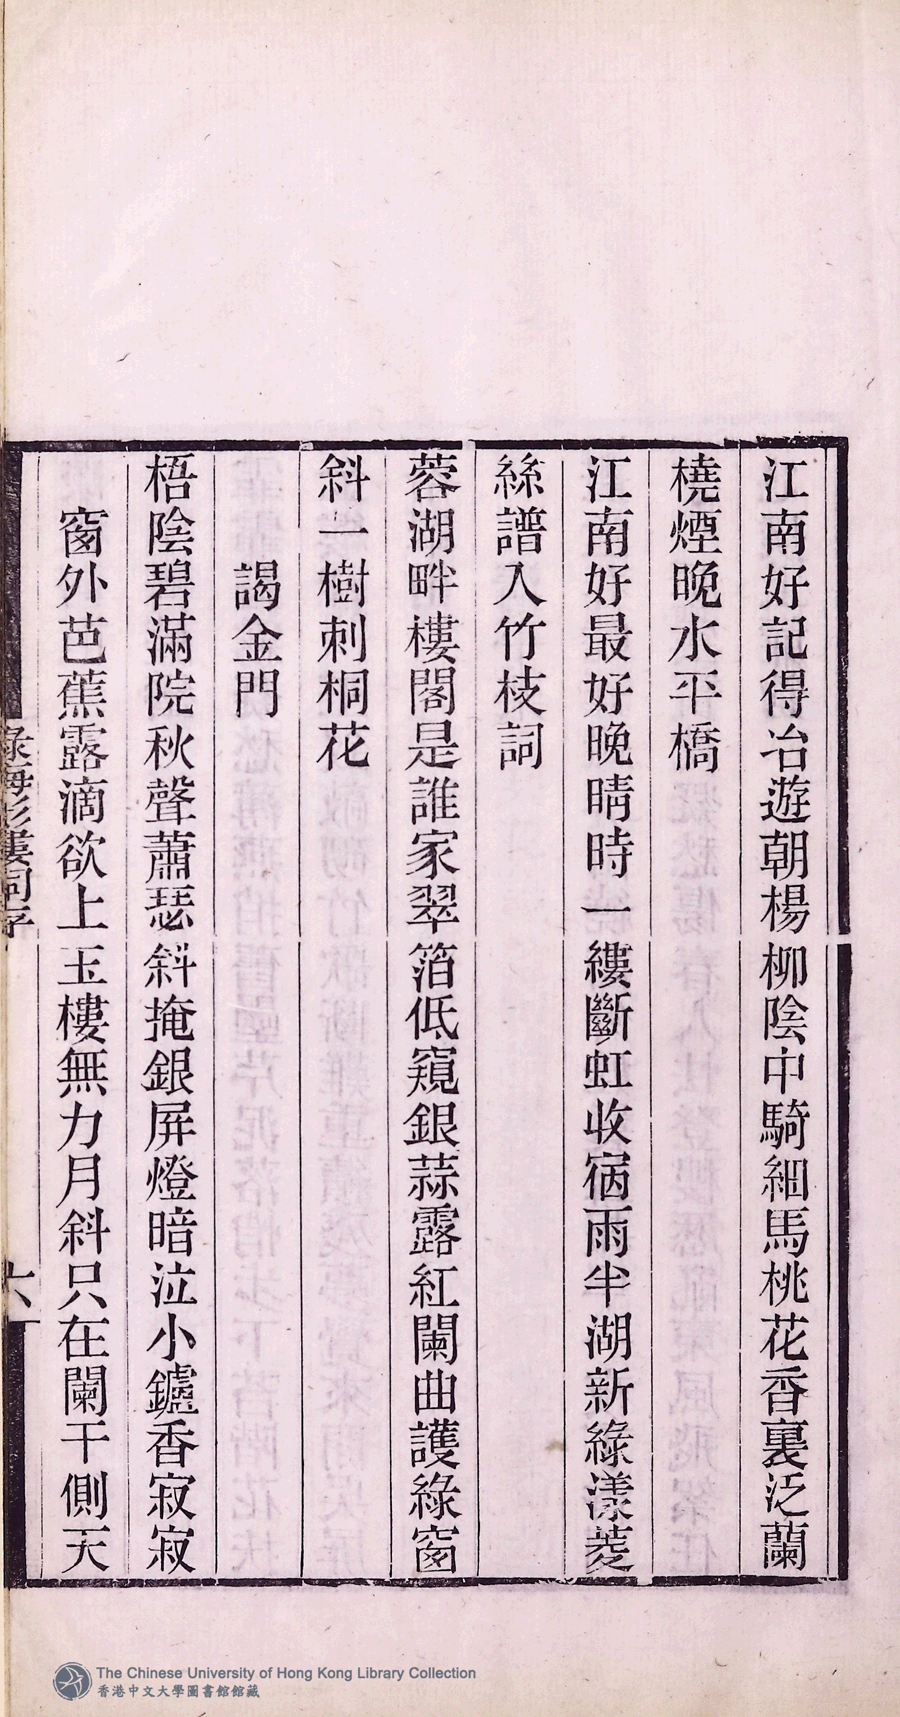 江南好記得冶遊朝楊柳陰中騎細馬桃花香裏泛蘭
橈煙晚水平橋
江南好最好晚晴時一縷斷虹收宿雨半湖新綠漾菱
絲譜入竹枝詞
蓉湖畔樓閣是誰家翠箔低窺銀蒜露紅闌曲護綠窗
斜一樹刺桐花
謁金門
梧陰碧滿院秋聲蕭瑟斜掩銀屏燈暗泣小鑪香寂寂
窗外芭蕉露滴欲上玉樓無力月斜只在闌干側天
六
The Chinese University of Hong Kong Library Collection
香港中文大學圖書館館藏